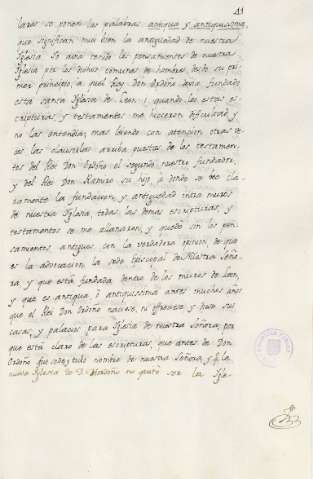 41
laras se ponen las palabras antigua y antiquissima,
que significan mui bien la antiguedad de nuestra
Iglesia. Yo avia tenido los pensamientos de nuestra
Iglesia por los dichos comunes de hombres, desde su pri-
mer principio, a quel Rey Don Ordoño avia fundado
esta Santa Iglesia de Leon, quando leí estas es-
cripturas y testamentos me hicieron dificultad, y
no las entendia; mas leiendo con atencion otras ve-
ces las clausulas arriba puestas de los testamen-
tos del Rei Don Ordoño el segundo, nuestro fundador,
y del Rei Don Ramiro su hijo, a donde se dice cla-
ramente la fundacion, y antiguedad intra muros
de nuestra Iglesia, todas las demas escripturas, y
testamentos se me allanaron, y quedé sin los pen-
samientos antiguos con la verdadera opinion, de que
es la advocacion, la sede Episcopal de Nuestra Seño-
ra, y que está fundada dentro de los muros de Leon,
y que es antigua, i antiquissima antes muchos años
que el Rei Don Ordoño naciese, ni ofreciese y hase sus
casas, y palacios para Iglesia de nuestra Señora, por
que está claro de las escripturas, que antes de Don
Ordoño, que sede, tubo nombre de nuestra Señora, y q. la
Iglesia de D. Ordoño no se la Igle-